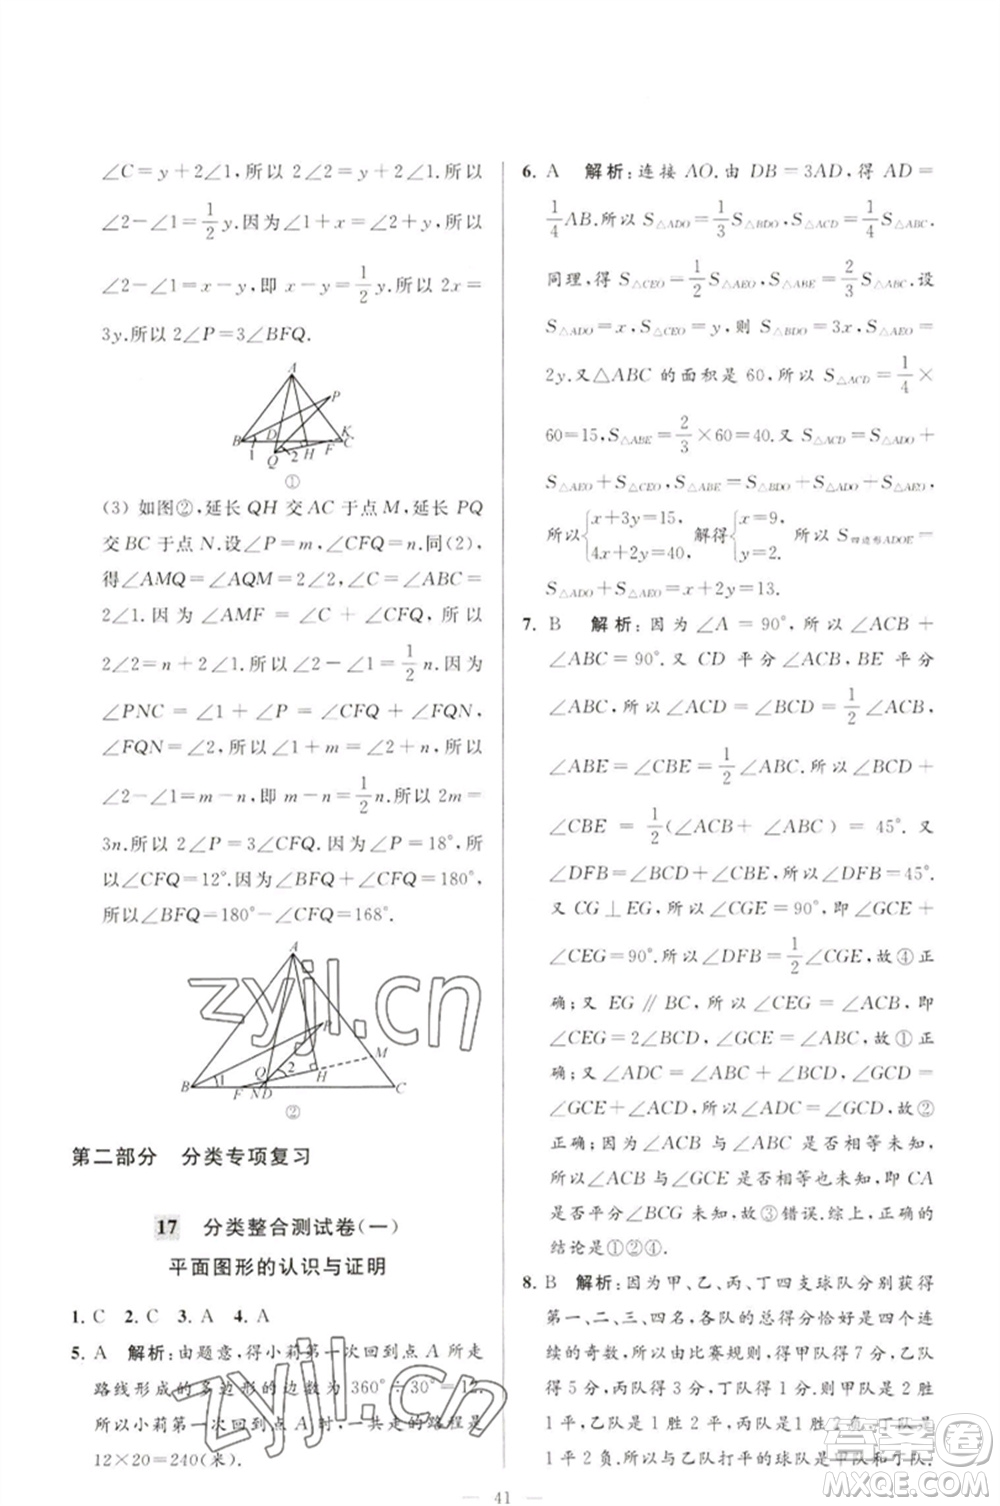 ∠C=y+2∠1,所以 2∠2=y+2∠1.所以
∠2-∠1=1/2 y.因为∠1+x=y+∠2,所以
∠2-∠1=x-y,即 x-y=1/2 y,所以 2x=
3y.所以 2∠P=3∠BFQ.
A
P
B
D
K
1
Q
2
H
F
C
①
(3) 如图②,延长 QH 交 AC 于点 M,延长 PQ
交 BC 于点 N.设∠P=m,∠CFQ=n.同(2),
得∠AMQ=∠AQM=2∠2,∠C=∠ABC=
2∠1.因为∠AMF=∠C+∠CFQ,所以
2∠2=n+2∠1.所以∠2-∠1=1/2 n.因为
∠PNC=∠1+∠P=∠CFQ+∠FQN,
∠FQN=∠2,所以∠1+m=n+∠2,所以
∠2-∠1=m-n,即 m-n=1/2 n,所以 2m=
3n.所以 2∠P=3∠CFQ.因为∠P=18°,所
以∠CFQ=12°.因为∠BFQ+∠CFQ=180°,
所以∠BFQ=180°-∠CFQ=168°.
A
P
M
Q
2
H
B
1
F
N
D
C
②
第二部分 分类专项复习
17 分类整合测试卷(一)
平面图形的认识与证明
1. C 2. C 3. A 4. A
5. A 解析:由题意,得小莉第一次回到点 A 所走
路线形成的多边形的边数为 360°÷30°=12.
所以小莉第一次回到点 A 时,一共走的路程是
12×20=240(米).
6. A 解析:连接 AO.由 DB=3AD,得 AD=
1/4 AB.所以 S△ADO=1/3 S△BDO,S△ACD=1/4 S△ABC.
同理,得 S△CEO=1/2 S△AEO,S△ABE=2/3 S△ABC.设
S△ADO=x,S△CEO=y,则 S△BDO=3x,S△AEO=
2y.又△ABC 的面积是 60,所以 S△ACD=1/4×
60=15,S△ABE=2/3×60=40.又 S△ACD=S△ADO+
S△AEO+S△CEO,S△ABE=S△BDO+S△ADO+S△AEO,
所以{x+3y=15,4x+2y=40.解得{x=9,y=2.所以 S四边形ADOE=
S△ADO+S△AEO=x+2y=13.
7. B 解析:因为∠A=90°,所以∠ACB+
∠ABC=90°.又 CD 平分∠ACB,BE 平分
∠ABC,所以∠ACD=∠BCD=1/2∠ACB,
∠ABE=∠CBE=1/2∠ABC.所以∠BCD+
∠CBE=1/2(∠ACB+∠ABC)=45°.又
∠DFB=∠BCD+∠CBE,所以∠DFB=45°.
又 CG⊥EG,所以∠CGE=90°,即∠GCE+
∠CEG=90°.所以∠DFB=1/2∠CGE,故④正
确;又 EG∥BC,所以∠CEG=∠ACB,即
∠CEG=2∠BCD,∠GCE=∠ABC,故①正
确;又∠ADC=∠ABC+∠BCD,∠GCD=
∠GCE+∠ACD,所以∠ADC=∠GCD,故②
正确;因为∠ACB与∠ABC是否相等未知,所
以∠GCE与∠ACB是否相等也未知,即CA
是否平分∠BCG未知,故③错误.综上,正确的
结论是①②④.
8. B 解析:因为甲、乙、丙、丁四支球队分别获得
第一、二、三、四名,各队的总得分恰好是四个连
续的奇数,所以由比赛规则,得甲队得 7 分,乙队
得 5 分,丙队得 3 分,丁队得 1 分.则甲队是 2 胜
1 平,乙队是 1 胜 2 平,丙队是 1 胜 2 负,丁队是 1
平 2 负.所以与乙队打平的球队是甲队和丁队.
41
zyjl.cn
zyjl.cn
答案圈
MXQE.COM